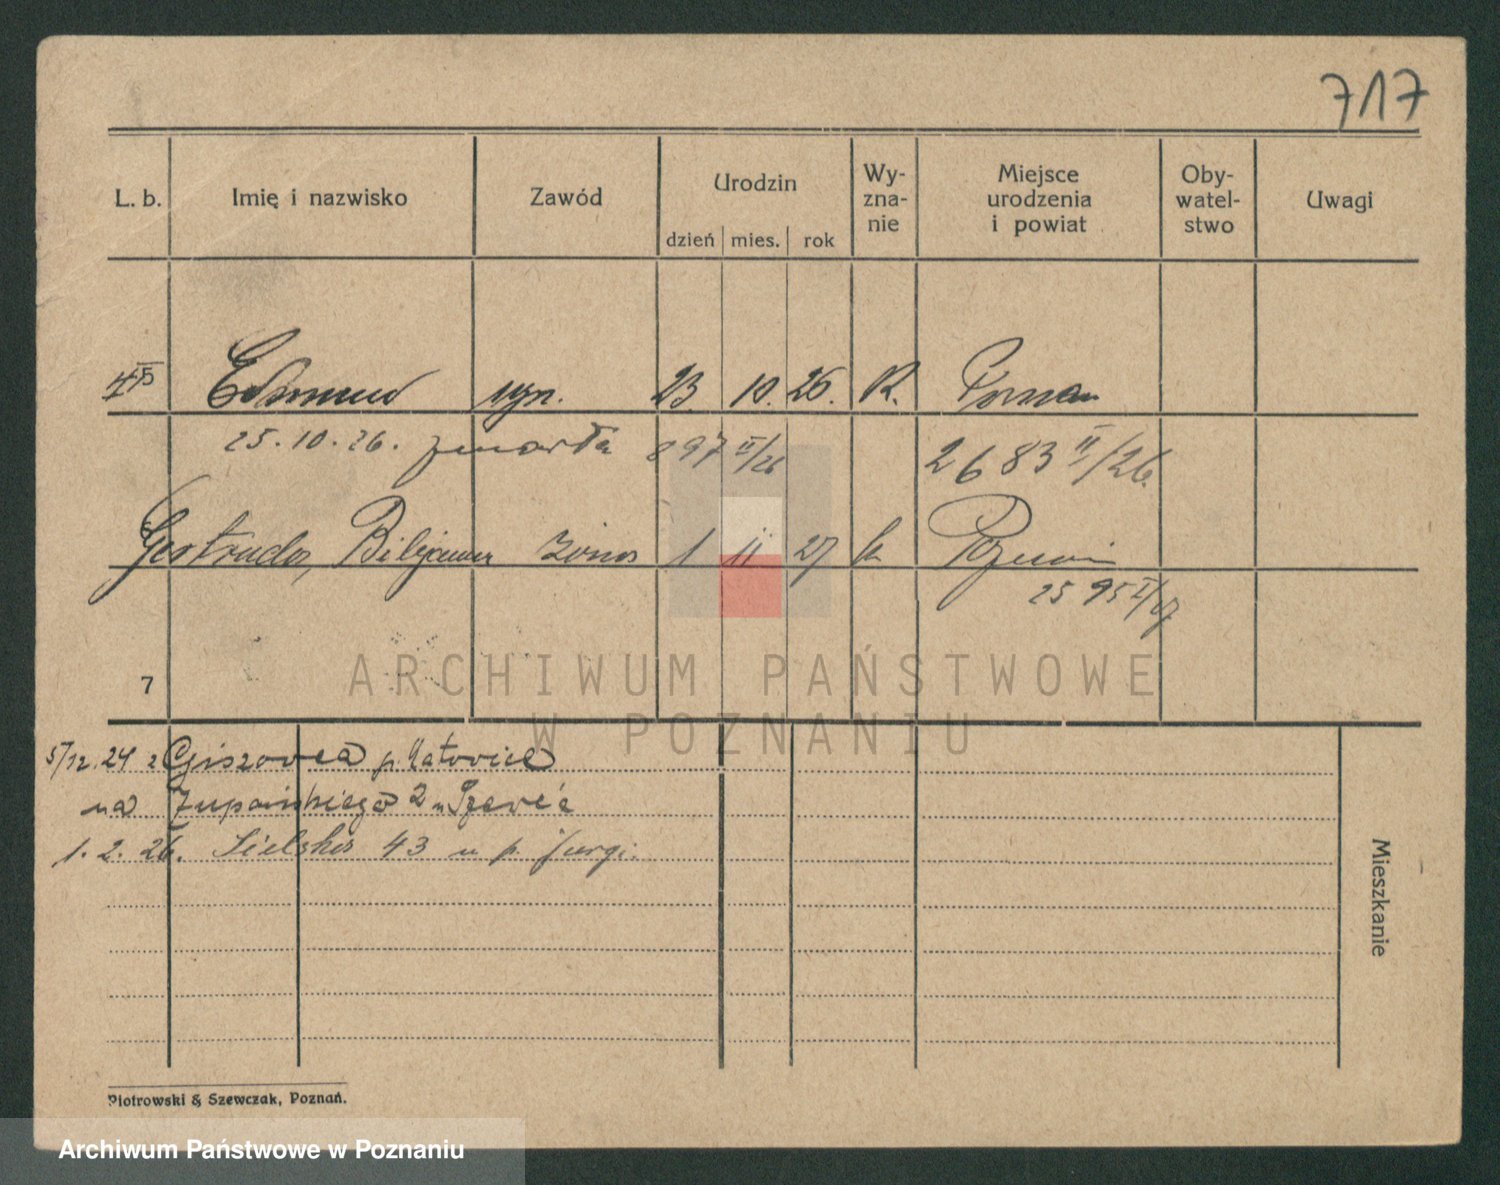 717
L. b. Imię i nazwisko Zawód Urodzin Wy-zna-nie Miejsce urodzenia i powiat Oby-watel-stwo Uwagi
dzień mies. rok
Edmund syn. 23. 10. 26. R. Poznan
25. 10. 26. zmarła 897 II/26 2683 II/26.
Gertruda, 1 11 27 k
2595 I/27
7
ARCHIWUM PAŃSTWOWE
W POZNANIU
5/12. 24 z Giszowca p. Katowice
na Żupańskiego 2
1. 2. 26. Sielska 43 u p. Jurgi.
Mieszkanie
Piotrowski & Szewczak, Poznań.
Archiwum Państwowe w Poznaniu